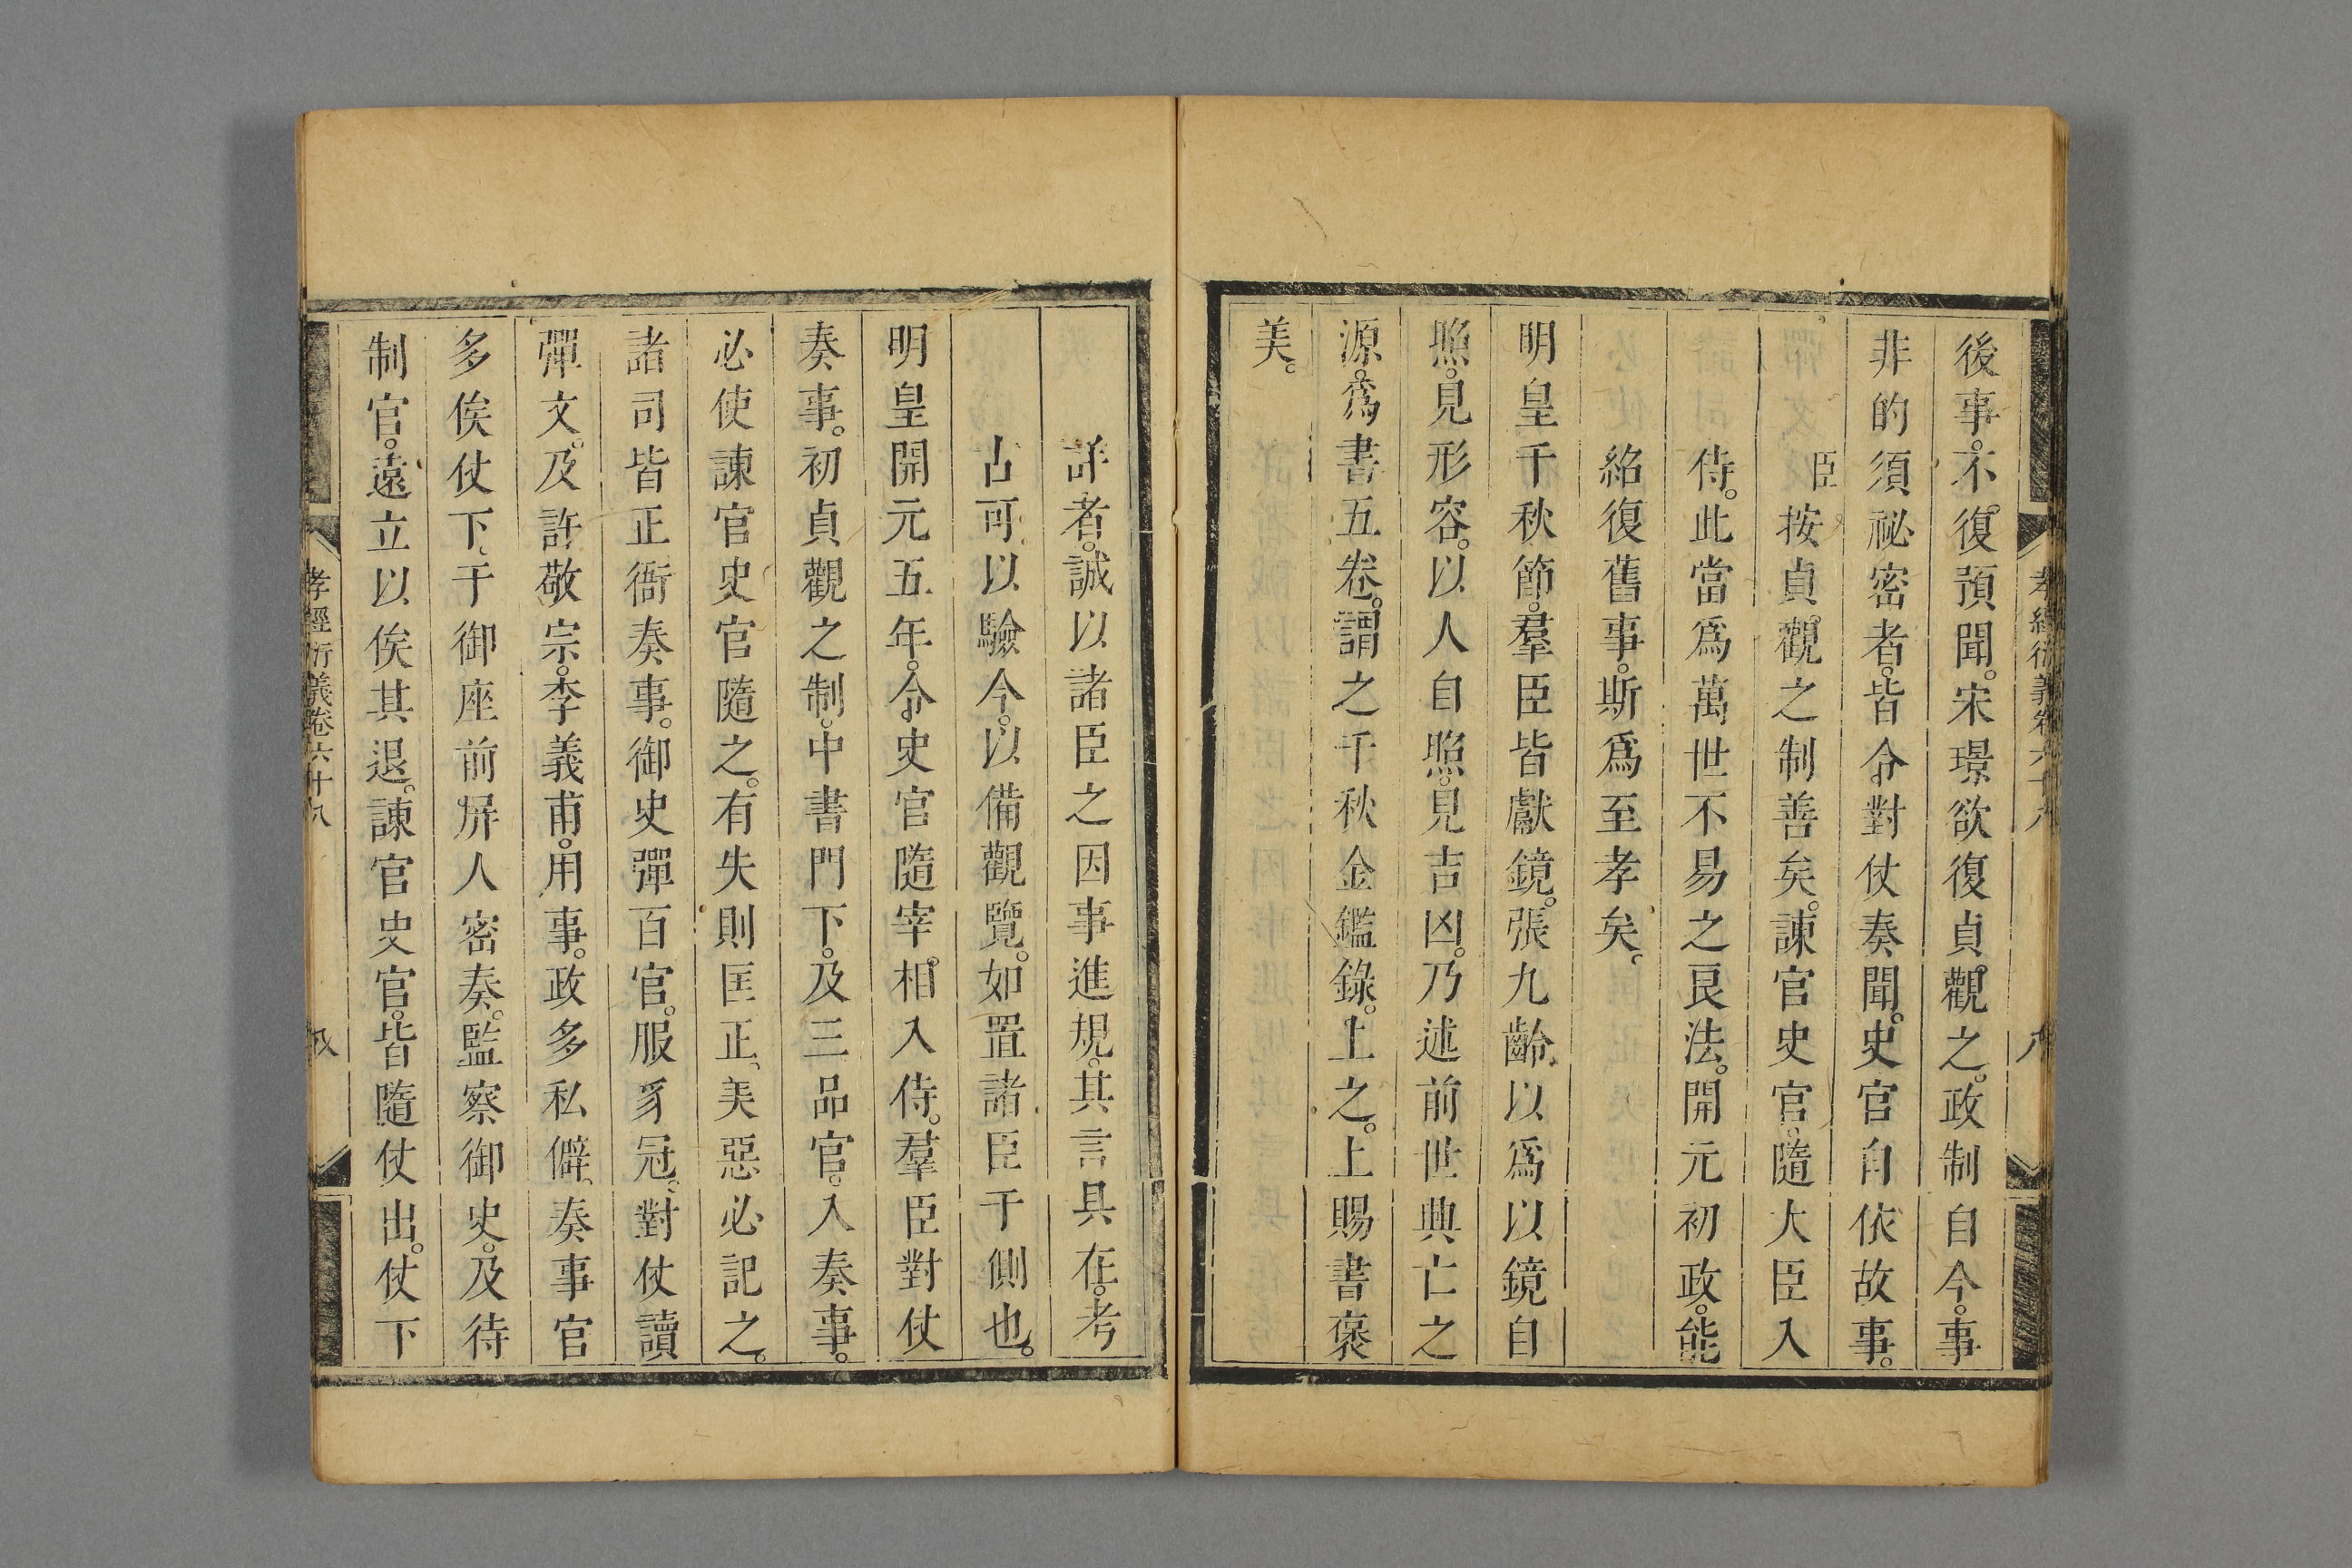 孝經衍義卷六十八
八
後事。不復預聞。宋璟欲復貞觀之。政制自今。事
非的須祕密者。皆令對仗奏聞。史官自依故事。
臣按貞觀之制善矣。諫官史官。隨大臣入
侍。此當爲萬世不易之良法。開元初政。能
紹復舊事。斯爲至孝矣。
明皇千秋節。羣臣皆獻鏡。張九齡以爲以鏡自
照。見形容。以人自照。見吉凶。乃述前世興亡之
源。爲書五卷。謂之千秋金鑑錄。上之。上賜書褒
美。
詳者。誠以諸臣之因事進規。其言具在。考
古可以驗今。以備觀覽。如置諸臣于側也。
明皇開元五年。令史官隨宰相入侍。羣臣對仗
奏事。初貞觀之制。中書門下。及三品官。入奏事。
必使諫官史官隨之。有失則匡正、美惡必記之。
諸司皆正衙奏事。御史彈百官。服豸冠。對仗讀
彈文。及許敬宗。李義甫。用事。政多私僻。奏事官
多俟仗下、于御座前屏人密奏。監察御史。及待
制官。遠立以俟其退。諫官史官。皆隨仗出。仗下
孝經衍義卷六十八